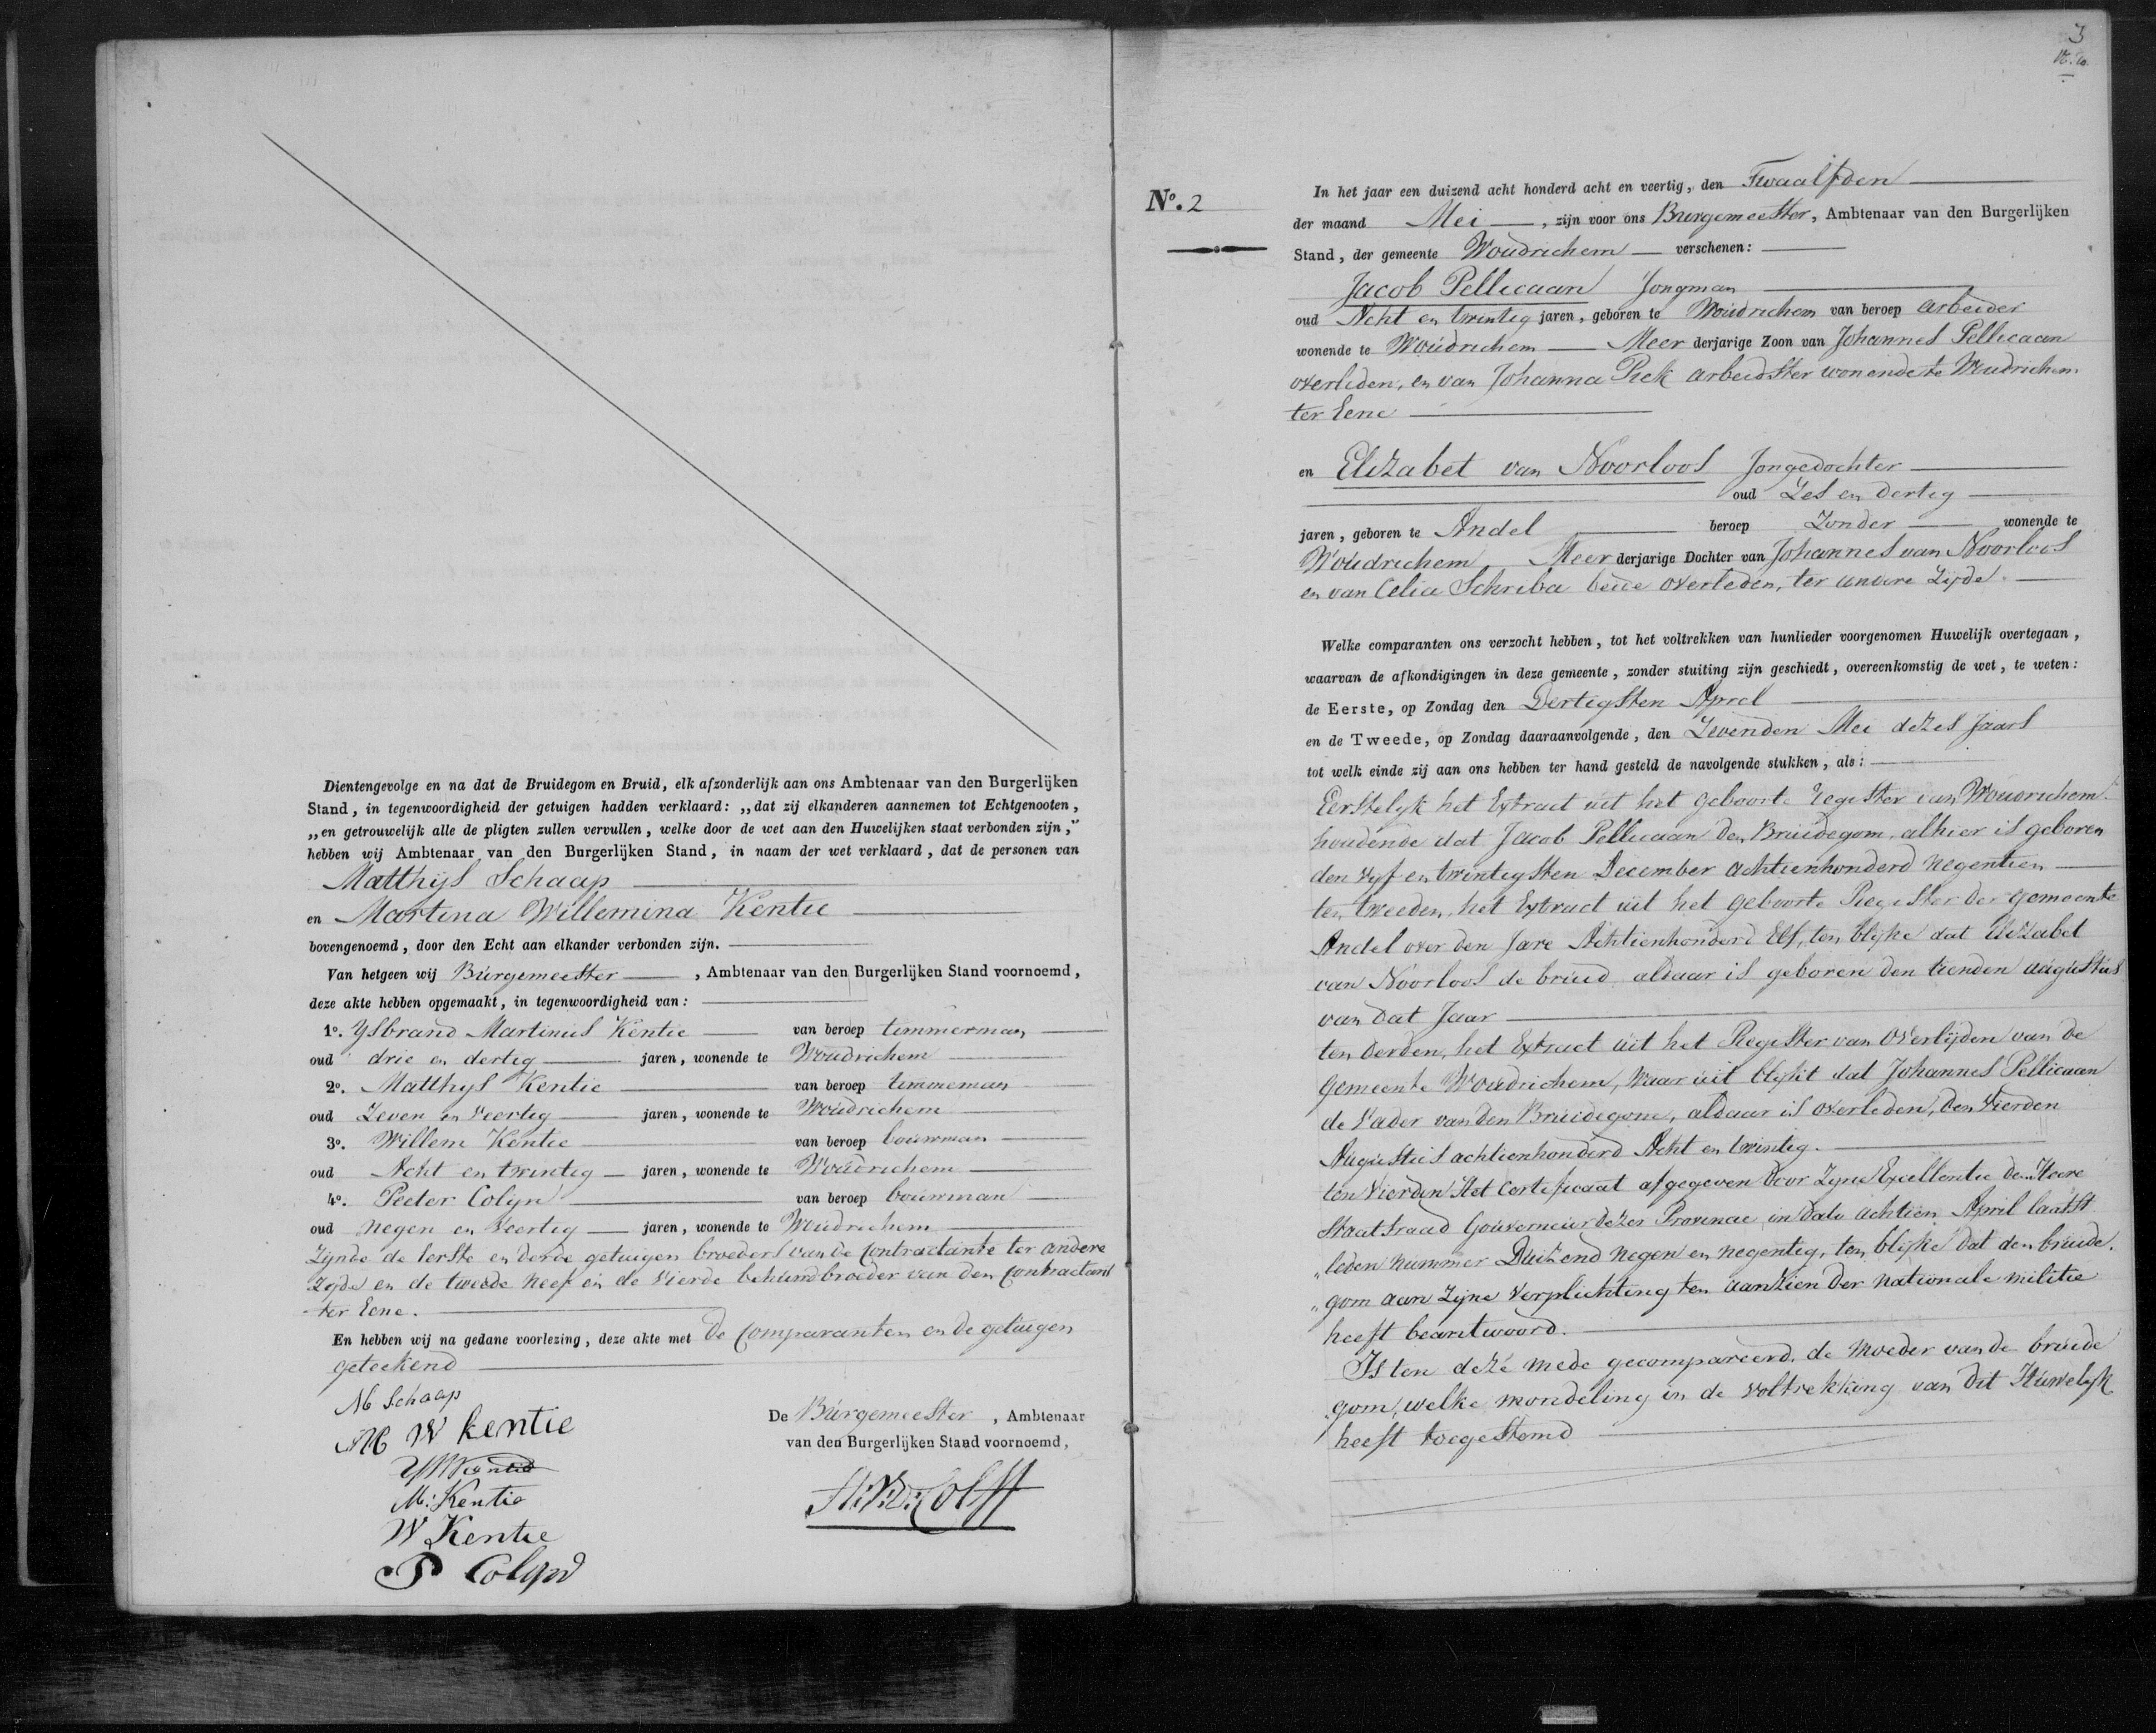 Dientengevolge en na dat de Bruidegom en Bruid, elk afzonderlijk aan ons Ambtenaar van den Burgerlijken
Stand, in tegenwoordigheid der getuigen hadden verklaard: „dat zij elkanderen aannemen tot Echtgenooten,
„en getrouwelijk alle de pligten zullen vervullen, welke door de wet aan den Huwelijken staat verbonden zijn,"
hebben wij Ambtenaar van den Burgerlijken Stand, in naam der wet verklaard, dat de personen van
Matthijs Schaap
en Martina Willemina Kentie
bovengenoemd, door den Echt aan elkander verbonden zijn.
Van hetgeen wij Burgemeester, Ambtenaar van den Burgerlijken Stand voornoemd,
deze akte hebben opgemaakt, in tegenwoordigheid van:
1º. Ysbrand Martinus Kentie van beroep timmerman
oud drie en dertig jaren, wonende te Woudrichem
2º. Matthijs Kentie van beroep timmeman
oud Zeven en Veertig jaren, wonende te Woudrichem
3º. Willem Kentie van beroep bouwman
oud Acht en twintig jaren, wonende te Woudrichem
4º. Peeter Colijn van beroep bouwman
oud negen en Veertig jaren, wonende te Woudrichem
Zijnde de Eerste en derde getuigen broeders van de Contractante ter andere
Zyde en de tweede neef en de Vierde behuwdbroeder van den Contractant
ter Eene.
En hebben wij na gedane voorlezing, deze akte met de Comparanten en de getuigen
geteekend
M Schaap
M W Kentie
De Burgemeester, Ambtenaar
van den Burgerlijken Stand voornoemd,
YM Kentie
M: Kentie
W Kentie
P Colyn
3
Nº. 2
In het jaar een duizend acht honderd acht en veertig, den Twaalfden
der maand Mei, zijn voor ons Burgemeester, Ambtenaar van den Burgerlijken
Stand, der gemeente Woudrichem verschenen:
Jacob Pellicaan Jongman
oud Acht en twintig jaren, geboren te Woudrichem van beroep arbeider
wonende te Woudrichem Meer derjarige Zoon van Johannes Pellicaan
overleden, en van Johanna Piek arbeidster wonende te Woudrichem
ter Eene
en Elizabet van Noorloos Jongedochter
oud Zes en dertig
jaren, geboren te Andel beroep Zonder wonende te
Woudrichem Meer derjarige Dochter van Johannes van Noorloos
en van Celia Schriba beide overleden, ter andere Zijde.
Welke comparanten ons verzocht hebben, tot het voltrekken van hunlieder voorgenomen Huwelijk overtegaan,
waarvan de afkondigingen in deze gemeente, zonder stuiting zijn geschiedt, overeenkomstig de wet, te weten:
de Eerste, op Zondag den Dertigsten April
en de Tweede, op Zondag daaraanvolgende, den Zevenden Mei dezes Jaars
tot welk einde zij aan ons hebben ter hand gesteld de navolgende stukken, als:
Eerstelyk het Extract uit het geboorte register van Woudrichem
houdende dat Jacob Pellicaan den Bruidegom, alhier is geboren
den vyf en twintigsten December achtienhonderd negentien
ten tweeden, het Extract uit het geboorte Register der gemeente
Andel over den Jare Achtienhonderd Elf, ten blijke dat Elizabet
van Noorloos de bruid aldaar is geboren den tienden augustus
van dat Jaar
ten derden, het Extract uit het Register van Overlijden van de
gemeente Woudrichem, waar uit blijkt dat Johannes Pellicaan
de Vader van den Bruidegom, aldaar is overleden, den Vierden
Augustus achtienhonderd Acht en twintig.
ten Vierden Het Certificaat afgegeven door Zyne Excellentie den Heere
Staatsraad Gouverneur dezer Provincie, in dato achtien April laatst
„leden nummer Duizend negen en negentig, ten blijke dat den bruide„
„gom aan Zijne Verplichting ten aanzien der nationale militie
heeft beantwoord.
Is ten deze mede gecompareerd, de Moeder van de bruide
„gom, welke mondeling in de voltrekking van dit Huwelijk
heeft toegestemd